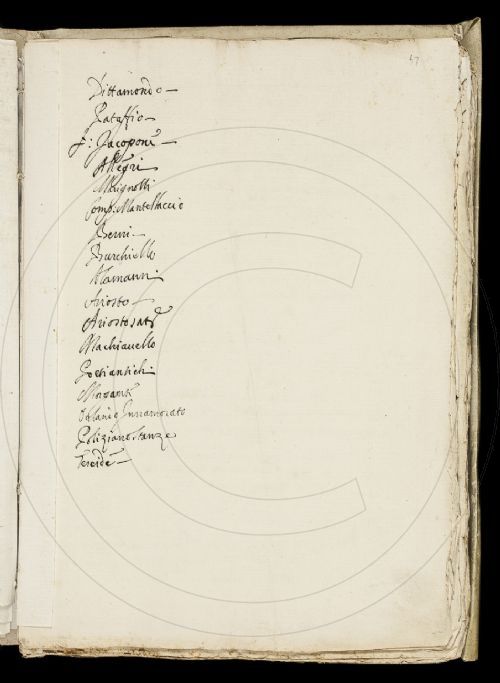 47
Dittamondo
Pataffio
f: Jacopone
Allegri
Mauignotti
Comp: Mantellaccio
Berni
Burchiello
Alamanni
Ariosto
Ariosto sat
Machiauello
Poeti antichi
Morgante
Orlando Innamorato
Poliziano Stanze
Teseide